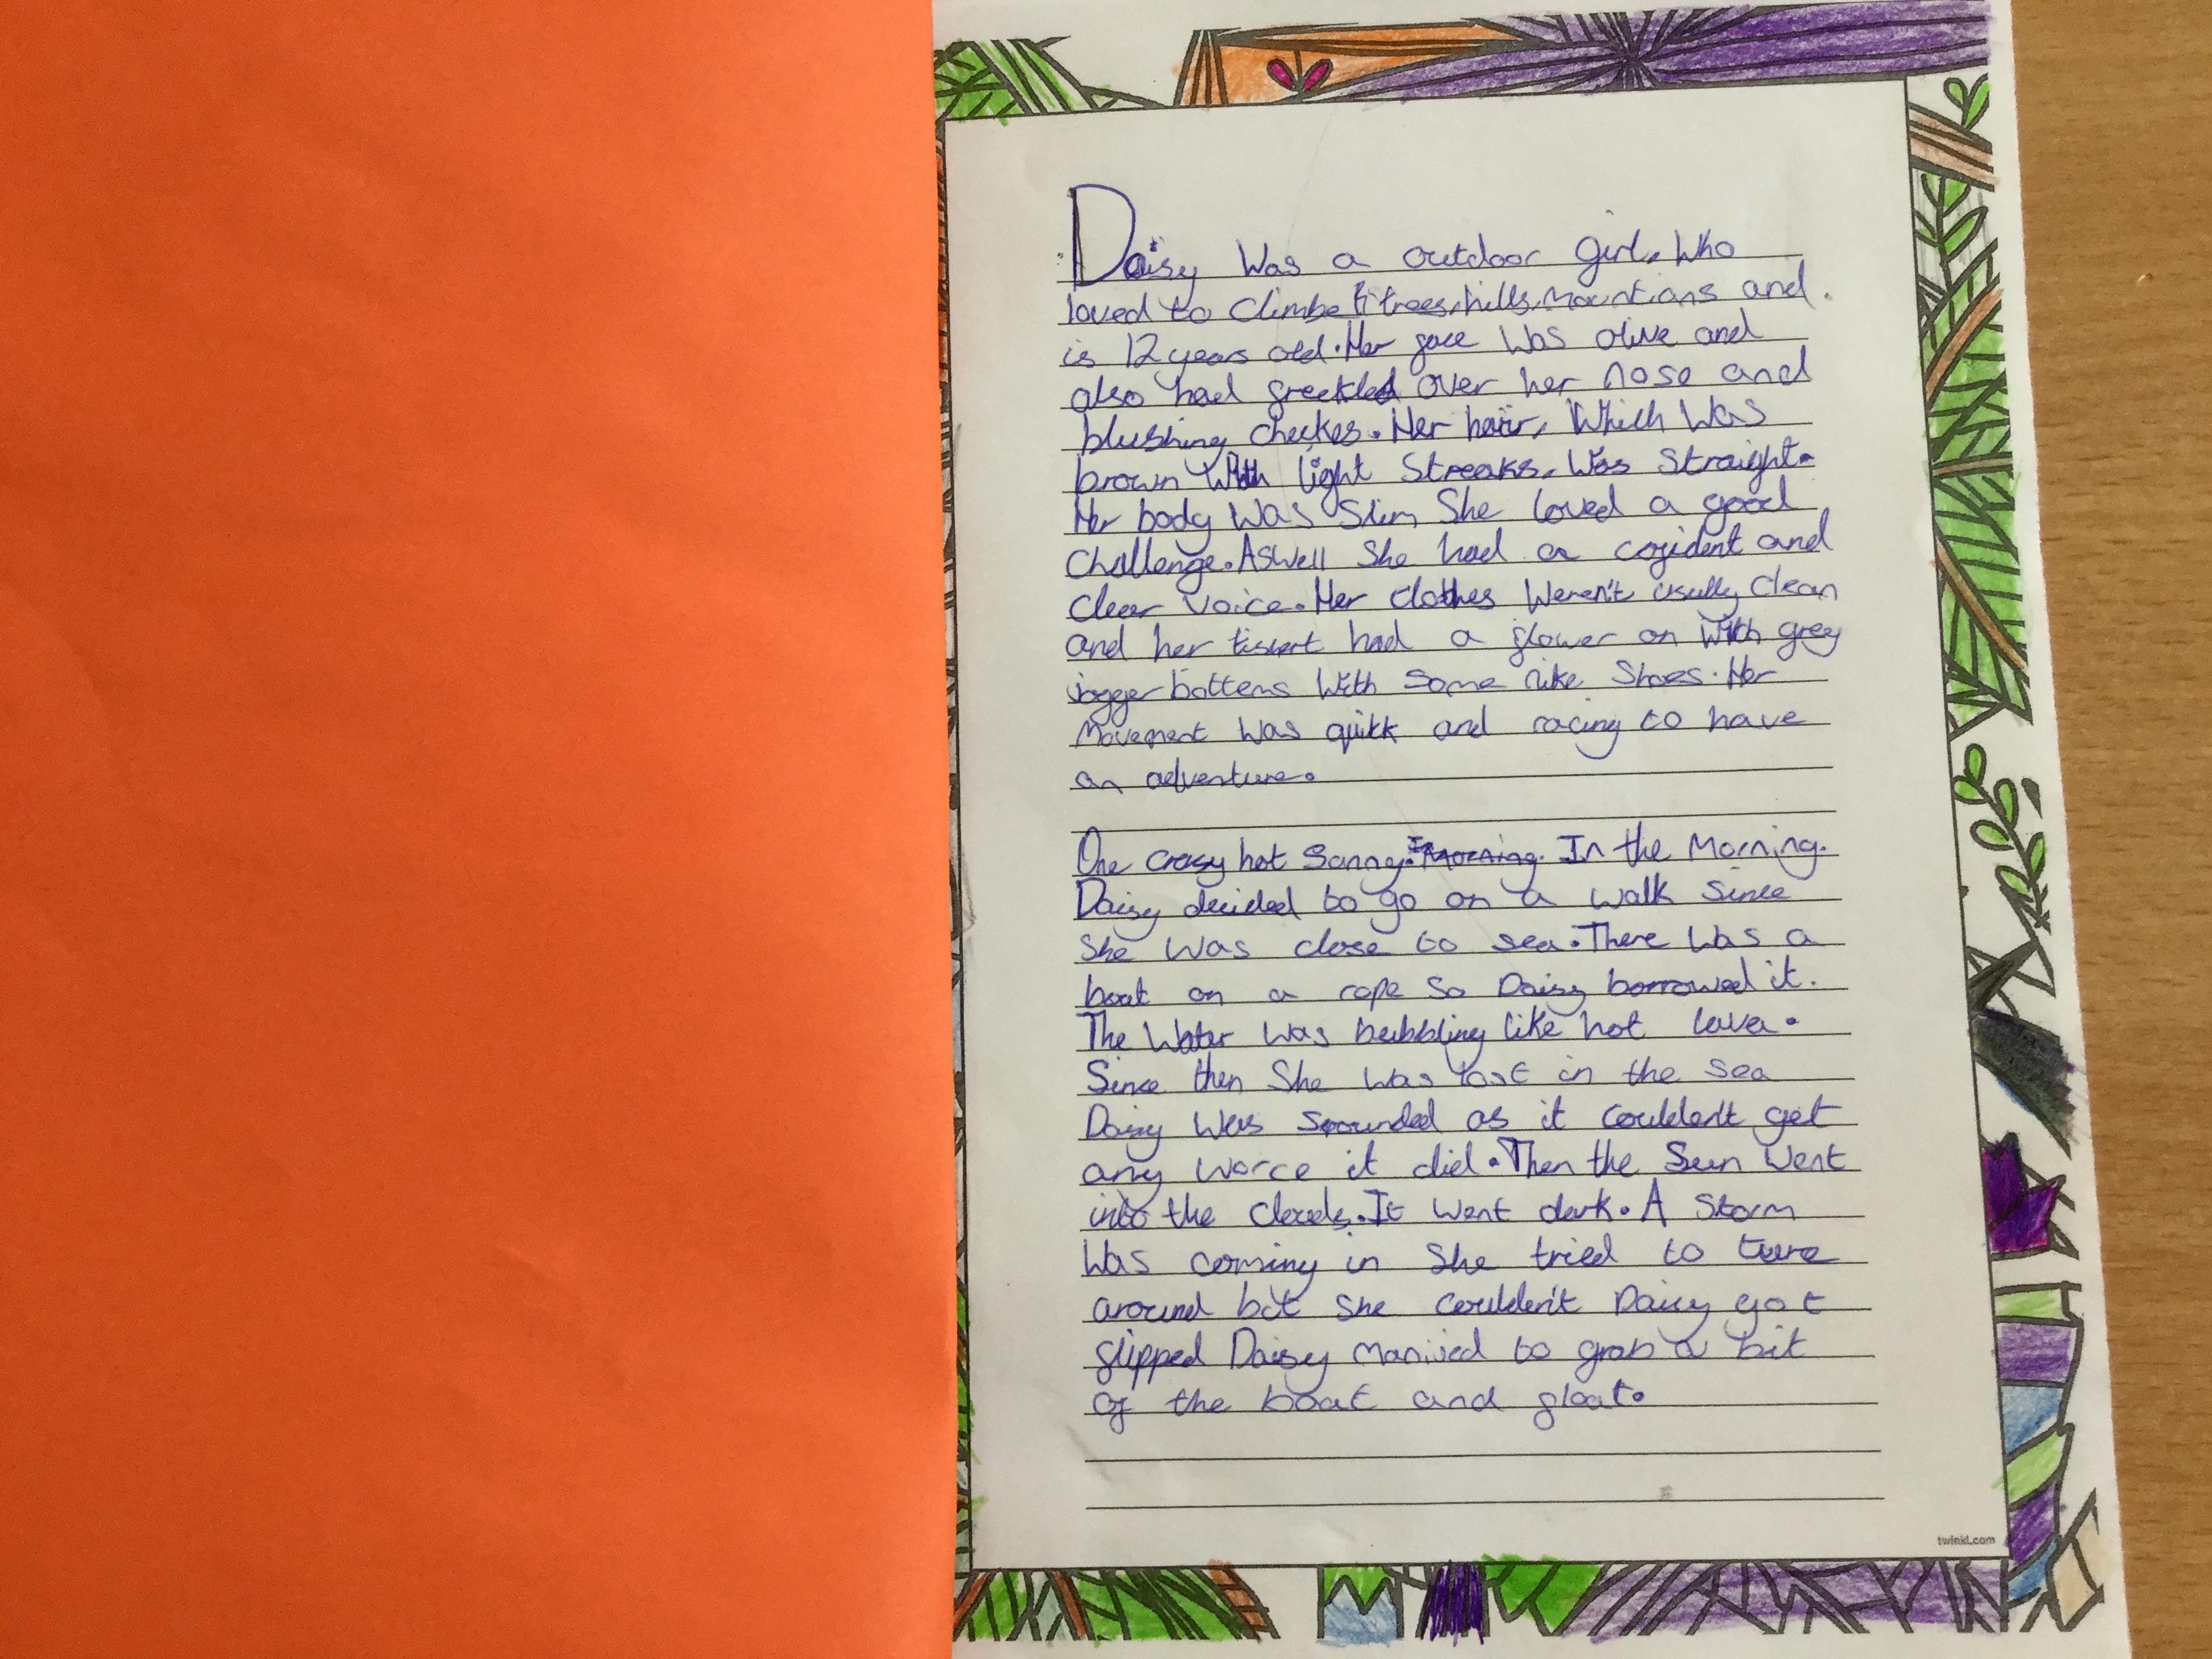 Daisy Was a outdoor girl, Who
loved to Climbe trees, hills, mountians and
is 12 years old. Her face was olive and
also had freckled over her nose and
blushing cheekes. Her hair, Which Was
brown With light Streaks, Was Straight.
Her body Was Slim She loved a good
Challenge. Aswell She had a cofident and
Clear voice. Her clothes Weren't usully Clean
and her tishert had a flower on With grey
jogger bottems With Some nike Shoes. Her
Movement Was quikk and racing to have
an adventure.
One crasy hot Sunny. In the Morning.
Daisy decided to go on a walk Since
She was close to sea. There Was a
boat on a rope So Daisy borrowed it.
The Water Was bubbling like hot lava.
Since then She was lost in the sea
Daisy Was as it Couldent get
any worce it did. Then the Sun Went
into the Clouds. It Went dark. A Storm
Was coming in She tried to
around but She Couldent Daisy got
flipped Daisy to grab a bit
of the boat and float.
twinkl.com